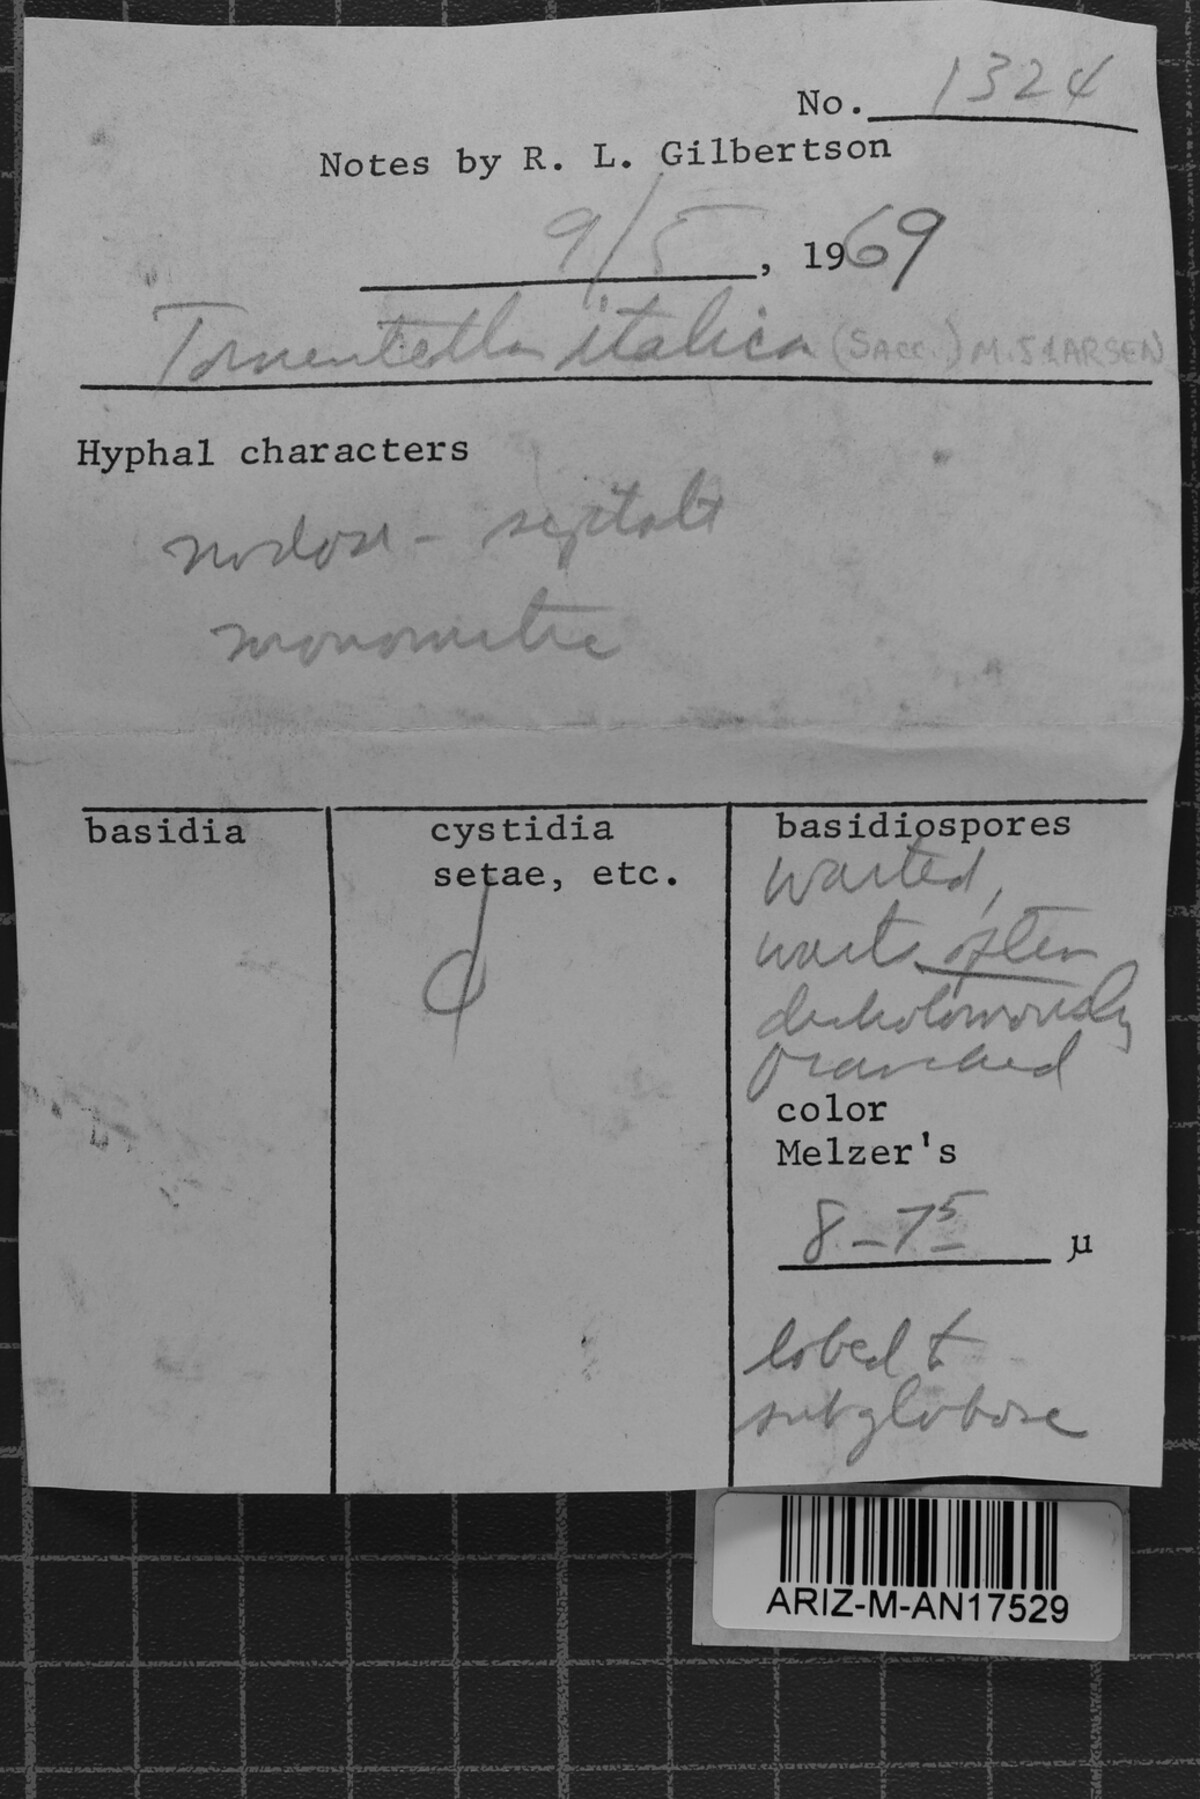 No. 1324
Notes by R. L. Gilbertson
9/5, 1969
Tomentella italica (SACC.) M.J. LARSEN
Hyphal characters
nodose - septate
monomitic
basidia
cystidia
setae, etc.
basidiospores
warted,
warts often
dichotomously
branched
color
Melzer's
8-7⁵ µ
lobed to
subglobose
ARIZ-M-AN17529